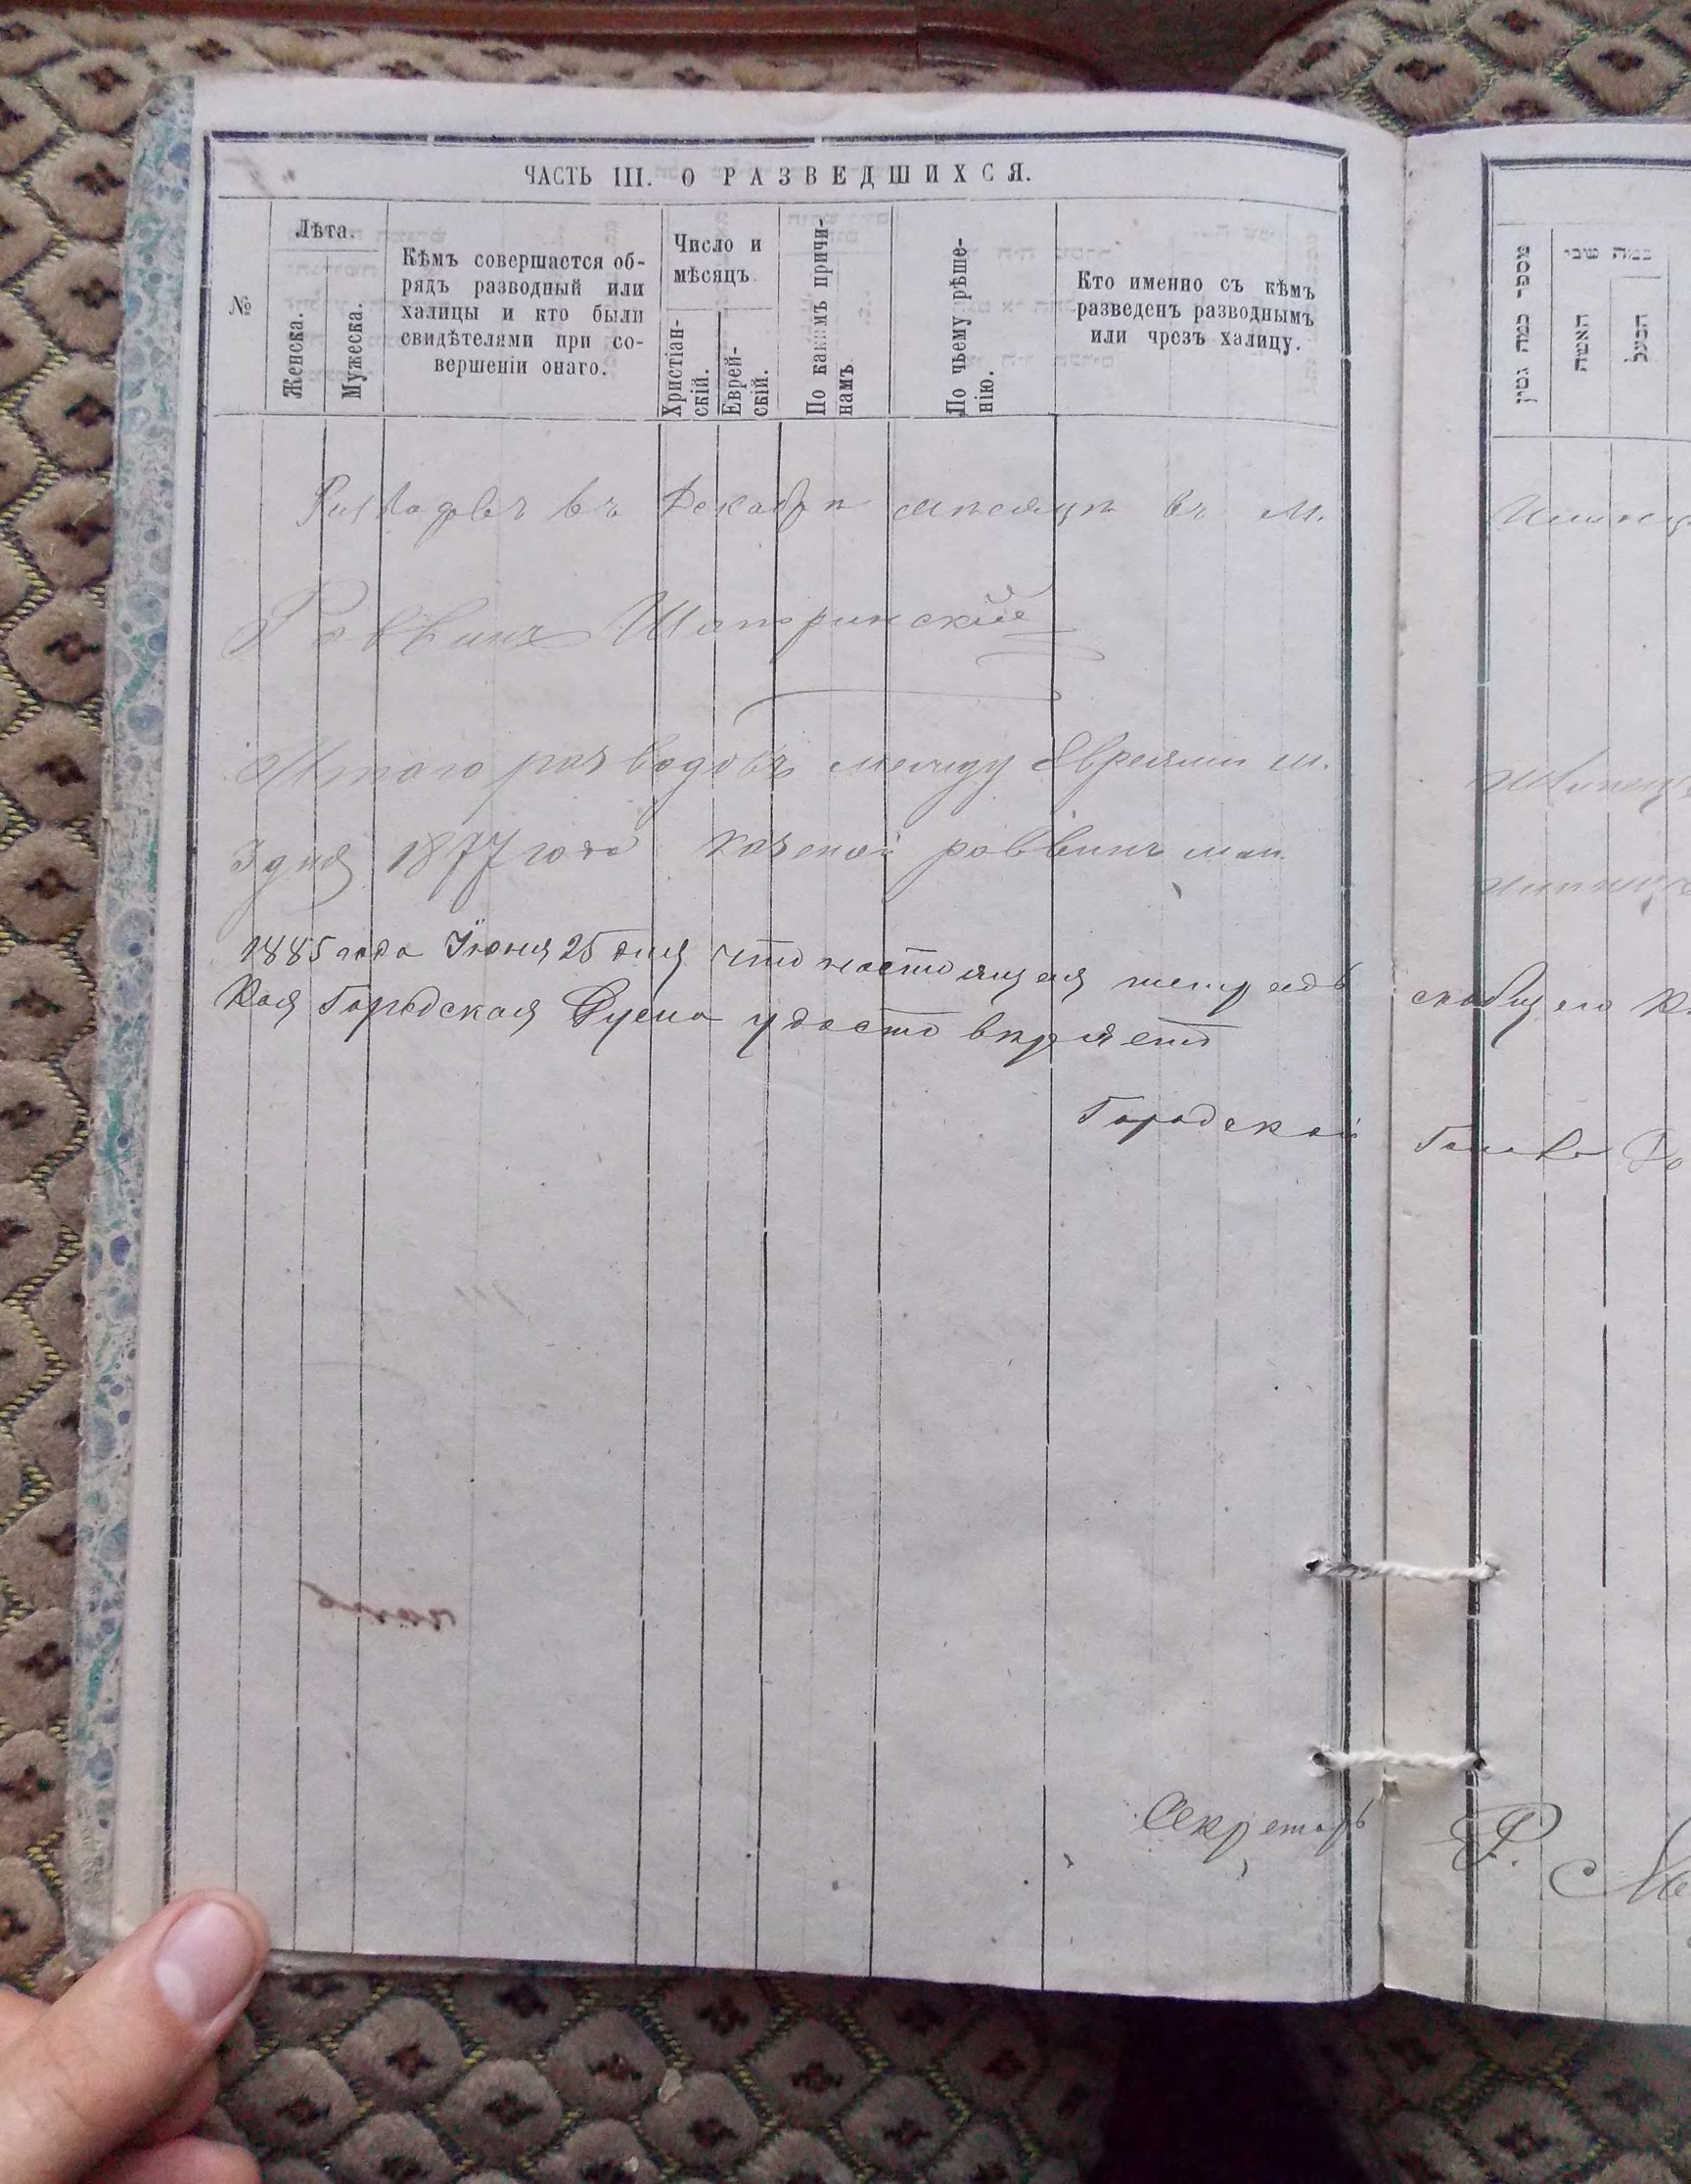 ЧАСТЬ III. О РАЗВЕДШИХСЯ.
№
Лѣта.
Женска.
Мужеска.
Кѣмъ совершается об-
рядъ разводный или
халицы и кто были
свидѣтелями при со-
вершеніи онаго.
Число и
мѣсяцъ
Христіан-
скій.
Еврей-
скій.
По какимъ причи-
намъ.
По чьему рѣше-
нію.
Кто именно съ кѣмъ
разведенъ разводнымъ
или чрезъ халицу.
Разводовъ въ Декабрѣ мѣсяцѣ въ м.
Раввинъ
Итого разводовъ между Евреями м.
3 дня 1877 года Казеной раввинъ
1885 года Іюня 25 дня что настоящая тетрадь
кая Городская Дума удостовѣряетъ
Городской
Секретарь
מספר כמה גטין
כמה שני
האשה
הבעל
Голова